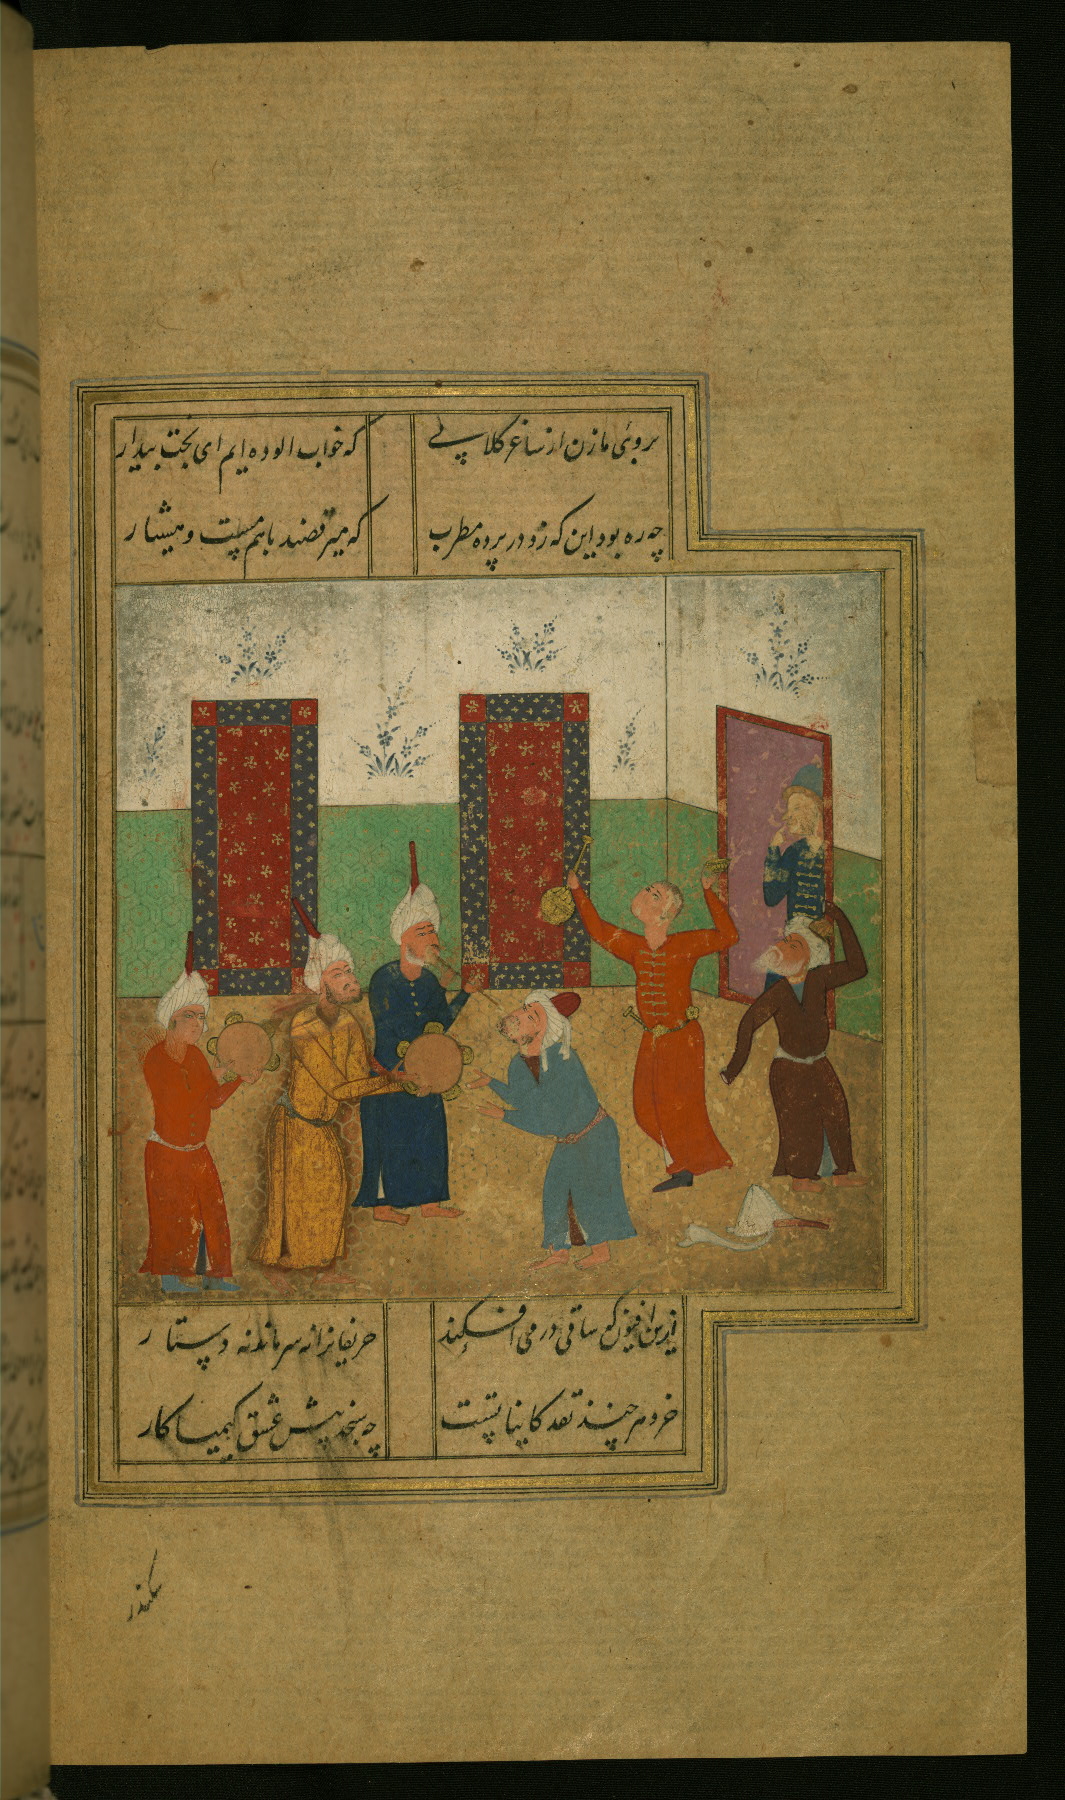 بروئی ما زن از ساغر کلابی که خواب الوده ایم ای بخت بیدار
چه ره بود این که زد در پرده مطرب که میرقصند باهم مست و هیشار
ازین افیون که ساقی در می افکند حریفانرا نه سر ماند نه دستار
خرد هر چند نقد کایناتست چه سنجد پیش عشق کیمیا کار
سکندر